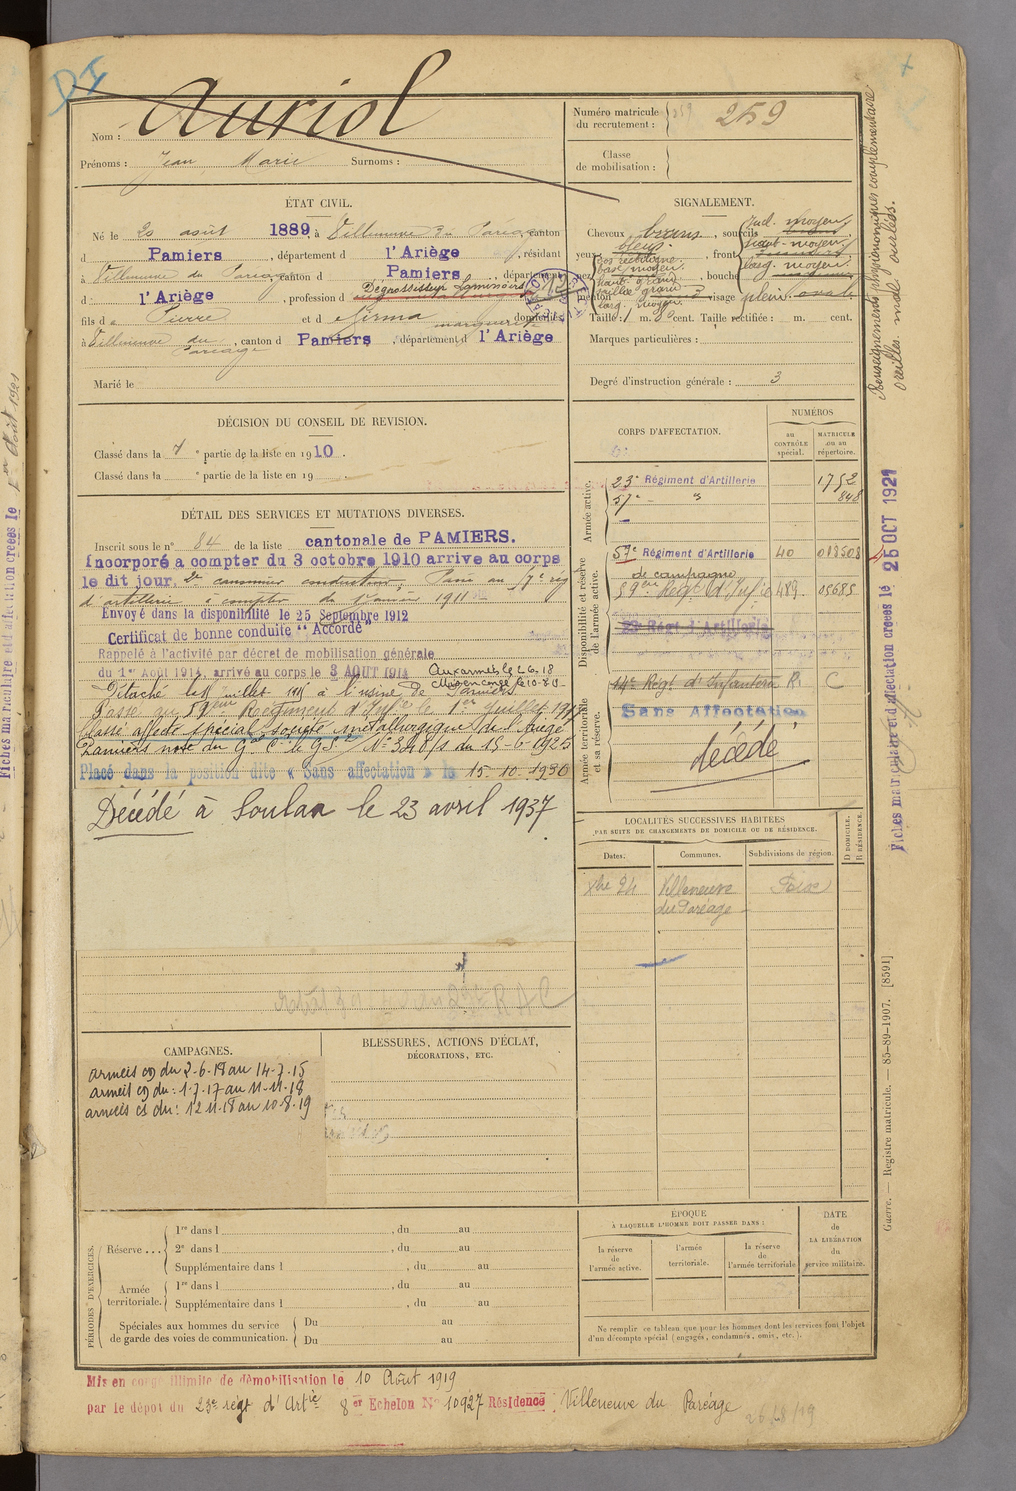 Nom : Auriol
Prénoms : Jean Marie Surnoms :
Numéro matricule du recrutement : 259
Classe de mobilisation :
ÉTAT CIVIL.
Né le 20 août 1889, à Villeneuve du Paréage, canton
d Pamiers, département d l'Ariège, résidant
à Villeneuve du Paréage, canton d Pamiers, département
d l'Ariège, profession d Dégrossisseur Laminoirs
fils de Pierre et d domiciliés
à Villeneuve du Paréage, canton d Pamiers, département d l'Ariège
Marié le
SIGNALEMENT.
Cheveux bruns, sourcils
yeux bleus, front
nez, bouche
menton, visage plein ovale
Taille : 1 m. cent. Taille rectifiée : m. cent.
Marques particulières :
Degré d'instruction générale : 3
Renseignements physionomiques complémentaires
oreilles mal ourlées.
DÉCISION DU CONSEIL DE REVISION.
Classé dans la 1re partie de la liste en 1910.
Classé dans la e partie de la liste en 19
DÉTAIL DES SERVICES ET MUTATIONS DIVERSES.
Inscrit sous le n° 84 de la liste cantonale de PAMIERS.
Incorporé a compter du 3 octobre 1910 arrive au corps
le dit jour, 2e canonnier conducteur. Passé au 57e rég
d'artillerie à compter du 1er 1911
Envoyé dans la disponibilité le 25 Septembre 1912
Certificat de bonne conduite "Accordé"
Rappelé à l'activité par décret de mobilisation générale
du 1er Août 1914, arrivé au corps le 3 AOUT 1914
Aux armées le 2-6-18
Détaché le juillet 1915 à l'usine de Pamiers
Passé au 59eme Régiment d'Infie le 1er juillet 1917
Classé affecté spécial société métallurgique de l'Ariège
Pamiers note du Gal Ct le GS N° 348/s du 15-6-1925
Placé dans la position dite « Sans affectation » le 15-10-1936
Décédé à Soulan le 23 avril 1937
CORPS D'AFFECTATION.
NUMÉROS
au CONTRÔLE spécial.
MATRICULE ou au répertoire.
Armée active.
23e Régiment d'Artillerie 1752
57e - " 848
Disponibilité et réserve de l'armée active.
57e Régiment d'Artillerie 40 013503
de campagne
59eme Régt d'Infie 489 05685
23e Régt d'Artillerie
Armée territoriale et sa réserve.
14e Régt d'Infanterie R. C
Sans Affectation
décédé
Fiches matriculaire et d'affectation créées le 25 OCT 1921
LOCALITÉS SUCCESSIVES HABITÉES
PAR SUITE DE CHANGEMENTS DE DOMICILE OU DE RÉSIDENCE.
Dates. Communes. Subdivisions de région. D DOMICILE. R RÉSIDENCE.
Xbre 24 Villeneuve du Paréage Foix
CAMPAGNES.
armées du 2-6-18 au 14-7-15
armées du : 1-7-17 au 11-11-18
armées du : 12 11-18 au 10-8-19
BLESSURES, ACTIONS D'ÉCLAT,
DÉCORATIONS, ETC.
PÉRIODES D'EXERCICES.
Réserve ... 1re dans l , du au
2e dans l , du au
Supplémentaire dans l , du au
Armée territoriale. 1re dans l , du au
Supplémentaire dans l , du au
Spéciales aux hommes du service de garde des voies de communication. Du au
Du au
ÉPOQUE
À LAQUELLE L'HOMME DOIT PASSER DANS :
la réserve de l'armée active.
l'armée territoriale.
la réserve de l'armée territoriale
DATE de LA LIBÉRATION du service militaire.
Ne remplir ce tableau que pour les hommes dont les services font l'objet
d'un décompte spécial (engagés, condamnés, omis, etc.).
Guerre. — Registre matricule. — 85-89-1907. [8591]
Mis en congé illimité de démobilisation le 10 Août 1919
par le dépôt du 23e régt d'Artie 8er Echelon N° 10927 Résidence Villeneuve du Paréage